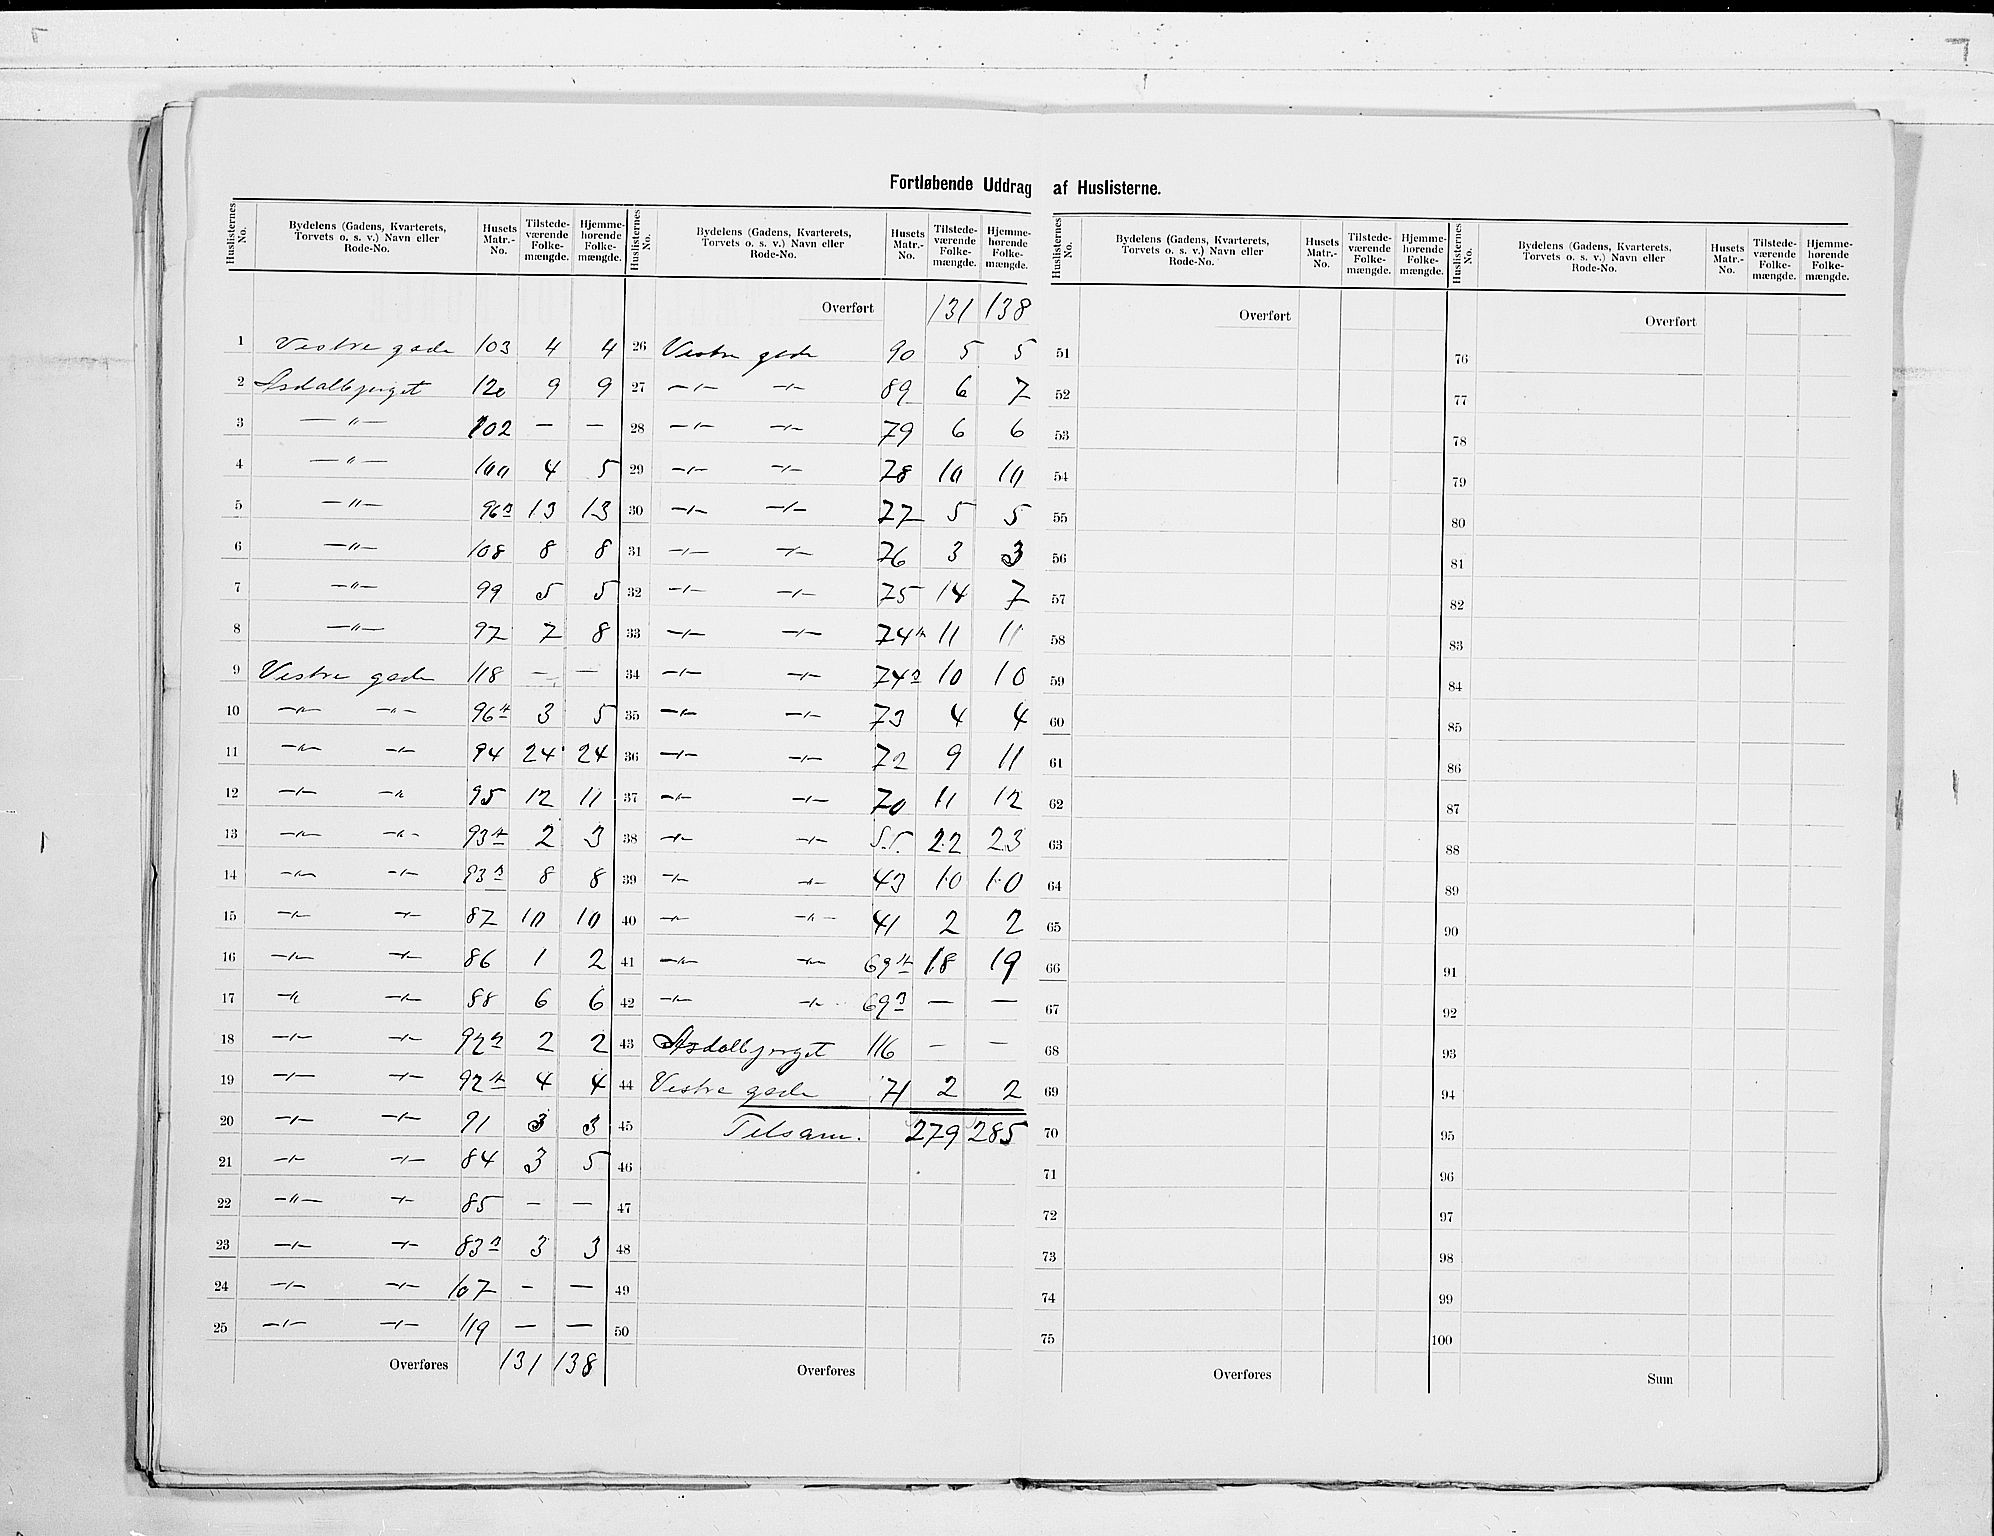 Fortløbende Uddrag af Huslisterne.
Huslisternes No. | Bydelens (Gadens, Kvarterets, Torvets o. s. v.) Navn eller Rode-No. | Husets Matr.-No. | Tilstedeværende Folkemængde. | Hjemmehørende Folkemængde.
1 Vestre gade 103 4 4
2 Asdalbjerget 120 9 9
3 —"— 102 — —
4 —"— 100 4 5
5 —"— 96a 13 13
6 —"— 108 8 8
7 —"— 99 5 5
8 —"— 97 7 8
9 Vestre gade 118 — —
10 —"— —"— 96b 3 5
11 —"— —"— 94 24 24
12 —"— —"— 95 12 11
13 —"— —"— 93b 2 3
14 —"— —"— 93a 8 8
15 —"— —"— 87 10 10
16 —"— —"— 86 1 2
17 —"— —"— 88 6 6
18 —"— —"— 92a 2 2
19 —"— —"— 92b 4 4
20 —"— —"— 91 3 3
21 —"— —"— 84 3 5
22 —"— —"— 85 — —
23 —"— —"— 83a 3 3
24 —"— —"— 107 — —
25 —"— —"— 119 — —
Overføres 131 138
Huslisternes No. | Bydelens (Gadens, Kvarterets, Torvets o. s. v.) Navn eller Rode-No. | Husets Matr.-No. | Tilstedeværende Folkemængde. | Hjemmehørende Folkemængde.
Overført 131 138
26 Vestre gade 90 5 5
27 —"— —"— 89 6 7
28 —"— —"— 79 6 6
29 —"— —"— 78 10 10
30 —"— —"— 77 5 5
31 —"— —"— 76 3 3
32 —"— —"— 75 14 7
33 —"— —"— 74b 11 11
34 —"— —"— 74a 10 10
35 —"— —"— 73 4 4
36 —"— —"— 72 9 11
37 —"— —"— 70 11 12
38 —"— —"— 55 22 23
39 —"— —"— 43 10 10
40 —"— —"— 41 2 2
41 —"— —"— 69b 18 19
42 —"— —"— 69a — —
43 Asdalbjerget 116 — —
44 Vestre gade 71 2 2
45 Tilsam. 279 285
46
47
48
49
50
Overføres
Huslisternes No. | Bydelens (Gadens, Kvarterets, Torvets o. s. v.) Navn eller Rode-No. | Husets Matr.-No. | Tilstedeværende Folkemængde. | Hjemmehørende Folkemængde.
Overført
51
52
53
54
55
56
57
58
59
60
61
62
63
64
65
66
67
68
69
70
71
72
73
74
75
Overføres
Huslisternes No. | Bydelens (Gadens, Kvarterets, Torvets o. s. v.) Navn eller Rode-No. | Husets Matr.-No. | Tilstedeværende Folkemængde. | Hjemmehørende Folkemængde.
Overført
76
77
78
79
80
81
82
83
84
85
86
87
88
89
90
91
92
93
94
95
96
97
98
99
100
Sum